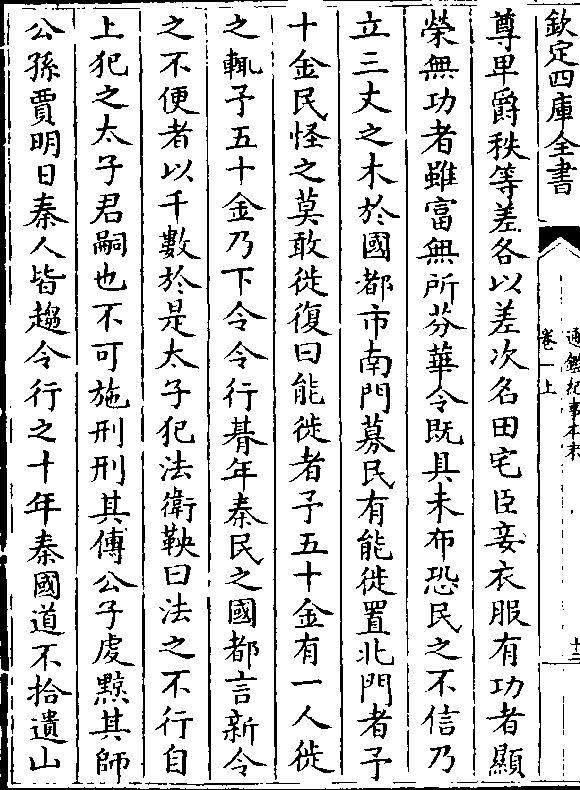 欽定四庫全書
通鑑紀事本末
卷一上
十三
尊卑爵秩等差各以差次名田宅臣妾衣服有功者顯
榮無功者雖富無所芬華令既具未布恐民之不信乃
立三丈之木於國都市南門募民有能徙置北門者予
十金民怪之莫敢徙復曰能徙者予五十金有一人徙
之輒予五十金乃下令令行朞年秦民之國都言新令
之不便者以千數於是太子犯法衛鞅曰法之不行自
上犯之太子君嗣也不可施刑刑其傅公子虔黥其師
公孫賈明日秦人皆趨令行之十年秦國道不拾遺山